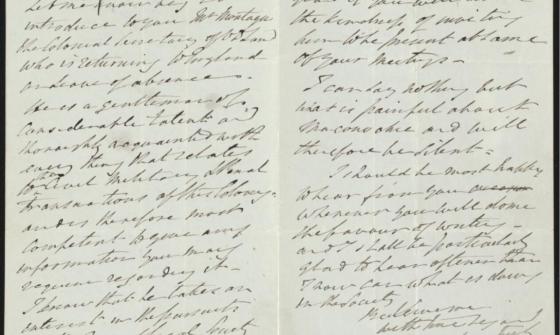 introduce to you Mr Montagu
the Colonial Secretary of V D Land
who is returning to England
on leave of absence.
He is a Gentleman of
Considerable talent and
thoroughly acquainted with
every thing that relates
to the Civil Military & Penal
transactions of this Colony -
and is therefore most
Competent to give any
information you may
require regarding it -
I know that he takes an
interest in the pursuits
the kindness of inviting
him to be present at some
of your Meetings -
I can say nothing but
what is painful about
Maconochie and will
therefore be silent -
I should be most happy
to hear from you
whenever you will do me
the favour of writing
and I shall be particularly
glad to hear oftener than
I now can what is doing
in the Society
Believe me
with much